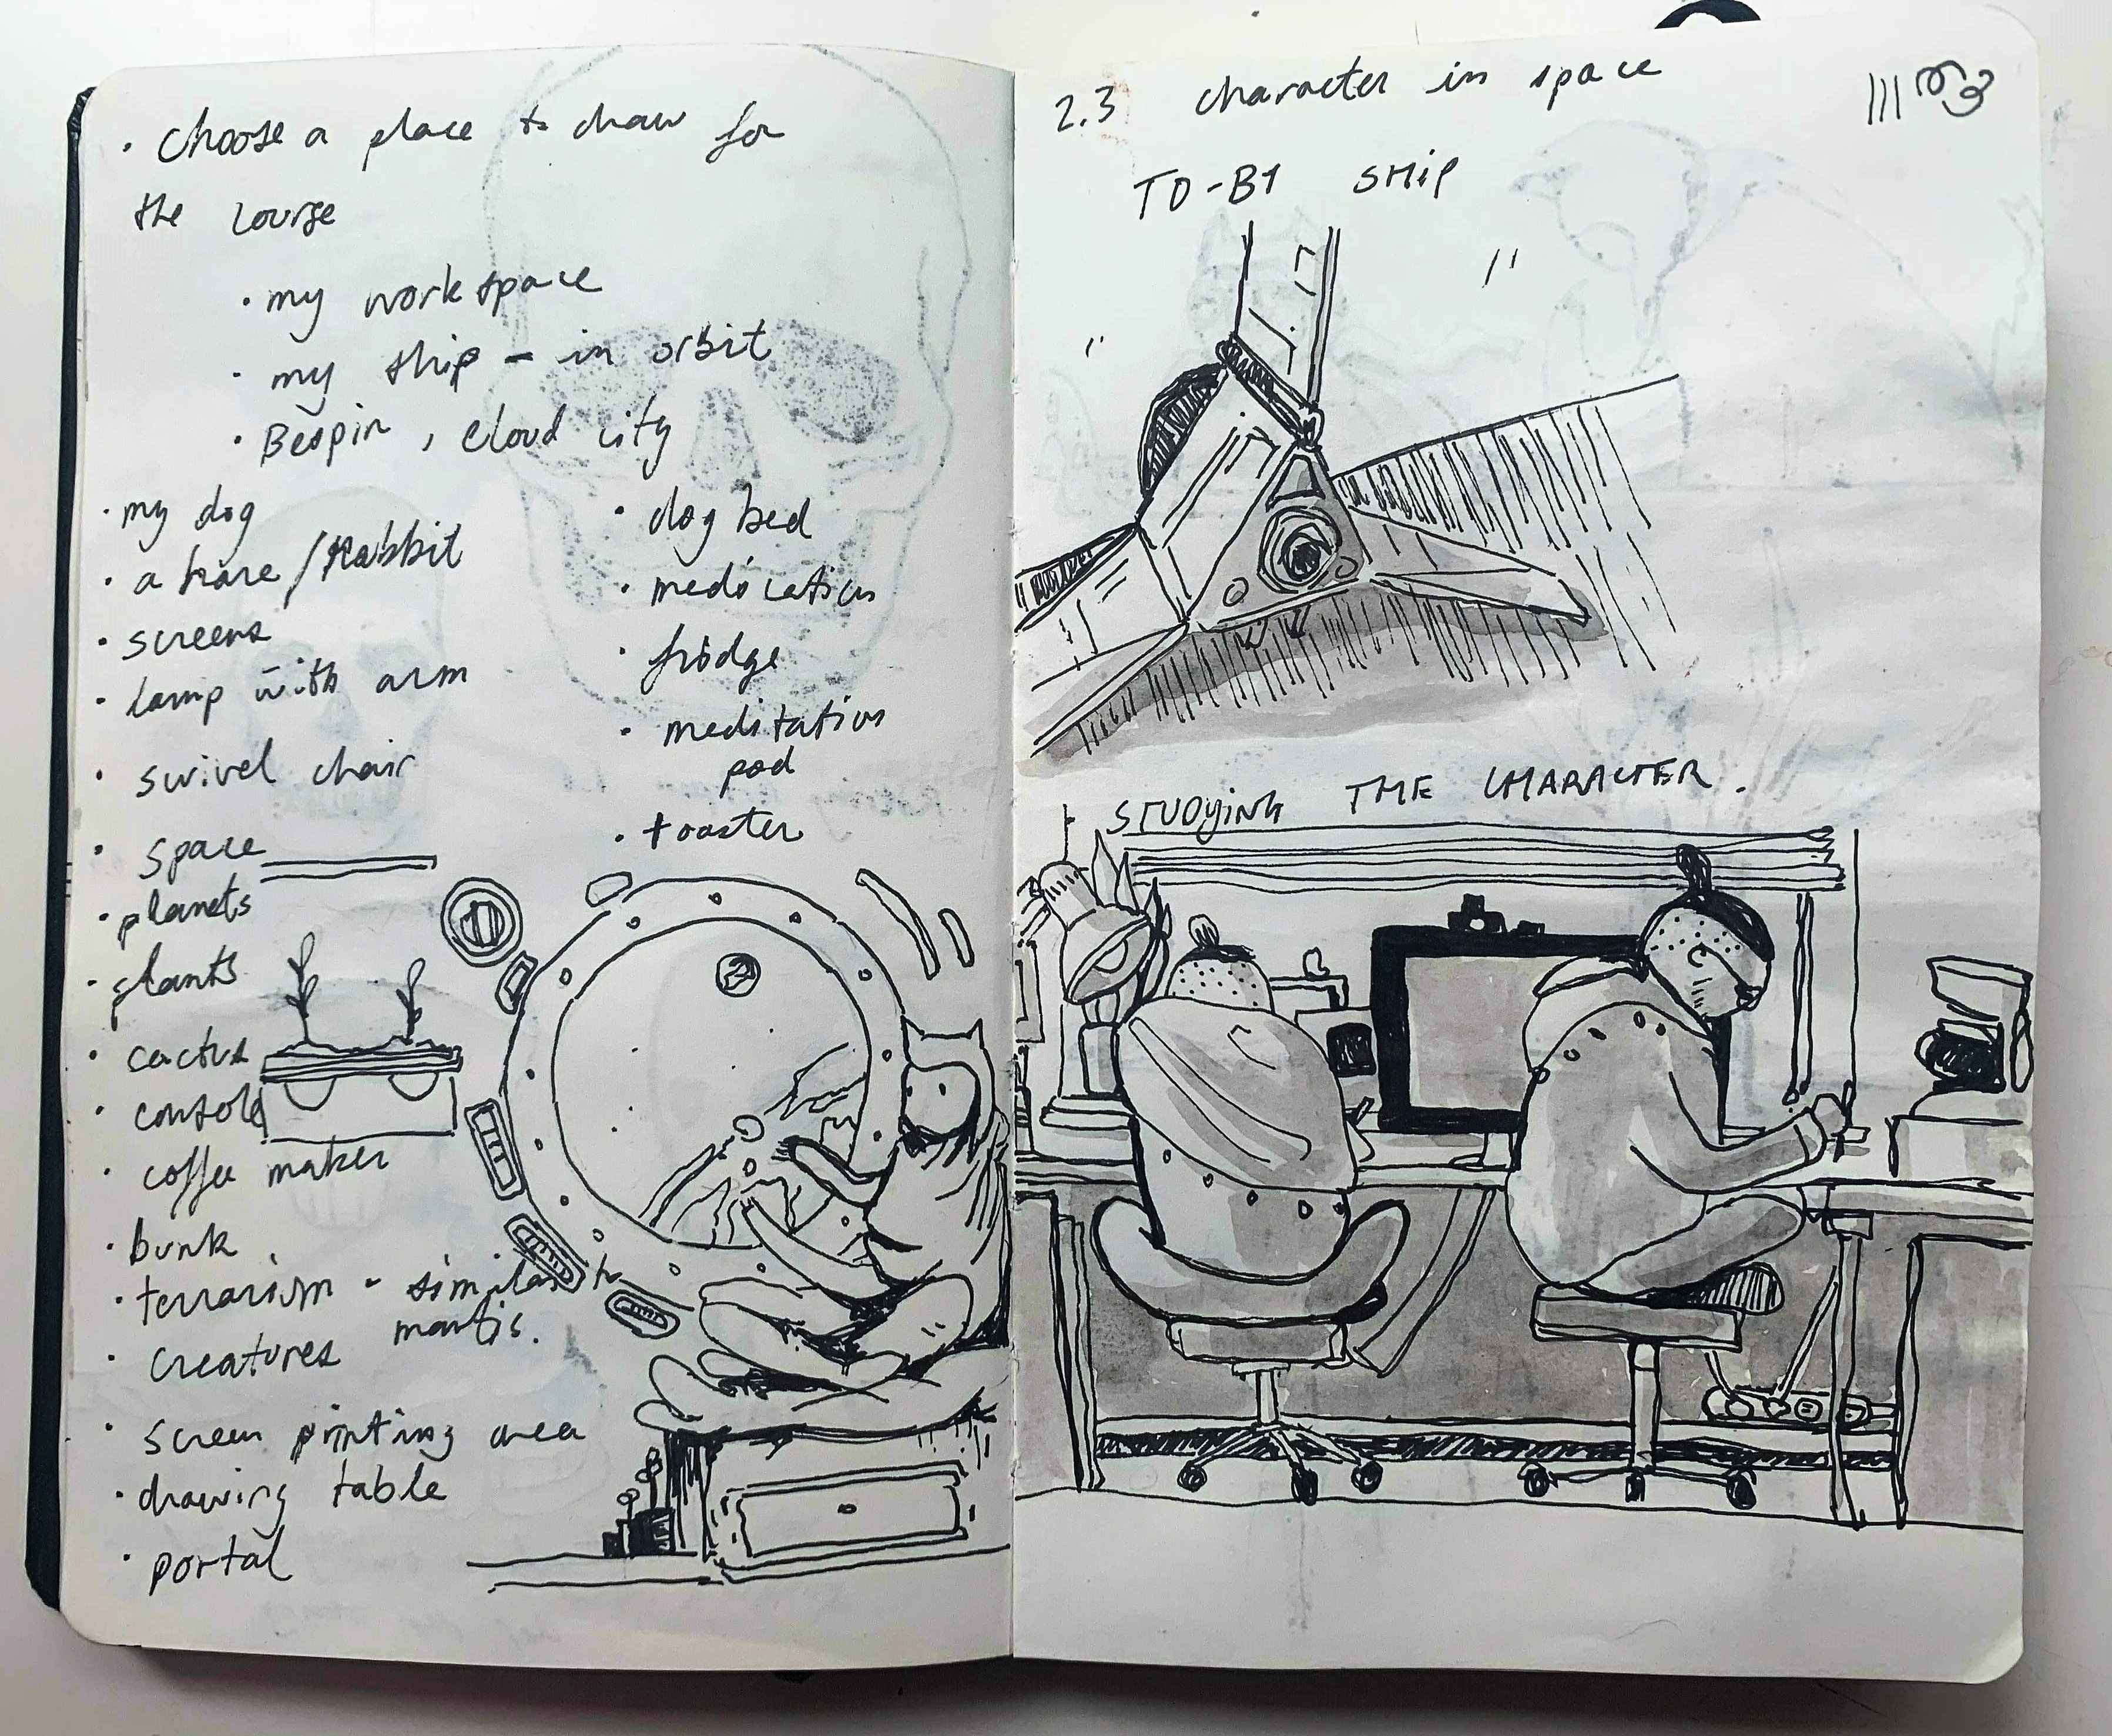 • choose a place to draw for
the course
• my workspace
• my ship - in orbit
• Bespin, cloud city
• my dog
• a hare/Rabbit
• screens
• lamp with arm
• swivel chair
• space
• planets
• plants
• cactus
• console
• coffee maker
• bunk
• terrarium - similar to
mantis.
• creatures
• screen printing area
• drawing table
• portal
• dog bed
• medication
• fridge
• meditation
pod
• toaster
2.3 character in space
TO-B1 SHip
STUDYiNG THE CHARACTER.